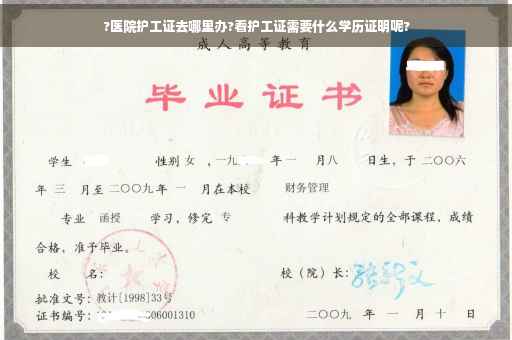 ?医院护工证去哪里办?看护工证需要什么学历证明呢?
成人高等教育
毕业证书
学生 性别 女 ,一九 年 一 月八 日生,于 二〇〇六
年 三 月至 二〇〇九年 一 月在本校 财务管理
专业 函授 学习,修完 专 科教学计划规定的全部课程,成绩
合格,准予毕业。
校 名: 校(院)长:
批准文号:教计[1998]33号
证书编号: 06001310 二〇〇九 年 一 月 十 日